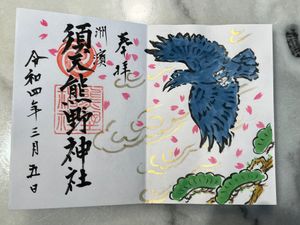 奉拝
洲濱
須天熊野神社
令和四年三月五日